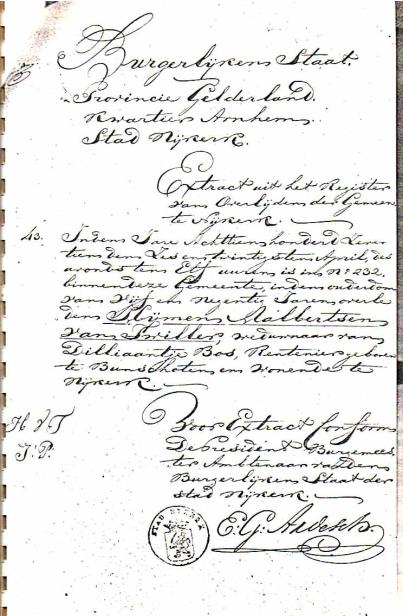 Burgerlyken Staat.
Provincie Gelderland.
Kwartier Arnhem.
Stad Nijkerk.
Extract uit het Register
van Overlijden der Gemeen
te Nijkerk.
43. In den Jare Achttien honderd
tiende den Zes en twintigsten April, des
avonds ten Elf uuren is in No. 232,
binnen deze Gemeente, in den ouderdom
van Vijf en Negentig Jaren overle
den Rijmen Malbertsen
van Twiller, weduwnaar van
Dilliaantje Bos, Rentenier geboren
te Bunschoten en wonende te
Nijkerk.
Voor Extract Conform
De President Burgemees
ter Ambtenaar van den
Burgerlijken Staat der
stad Nijkerk.
STAD NYKERK
E: G: